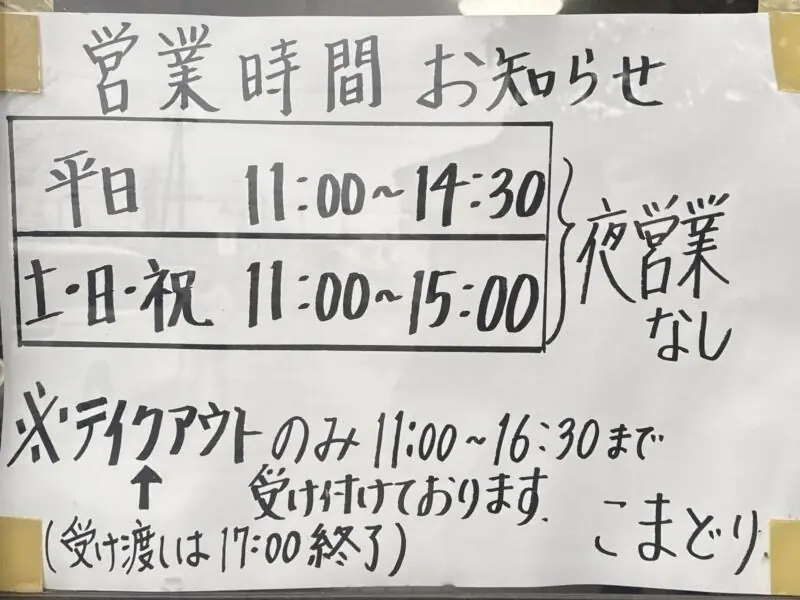 営業時間 お知らせ
平日 11:00～14:30
土・日・祝 11:00～15:00
夜営業
なし
※テイクアウトのみ 11:00～16:30まで
受け付けております.
(受け渡しは 17:00 終了)
こまどり